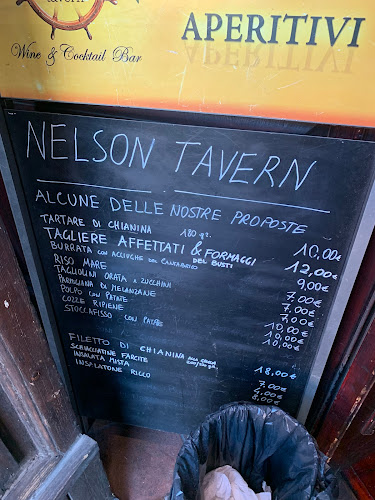 tavern
Wine & Cocktail Bar
APERITIVI
NELSON TAVERN
ALCUNE DELLE NOSTRE PROPOSTE
TARTARE DI CHIANINA 180 gr. 10,00€
TAGLIERE AFFETTATI & FORMAGGI DEL BUSTI 12,00€
BURRATA CON ACCIUGHE DEL CANTABRICO 9,00€
RISO MARE 7,00€
TAGLIOLINI ORATA E ZUCCHINI 7,00€
PARMIGIANA DI MELANZANE 7,00€
POLPO CON PATATE 10,00€
COZZE RIPIENE 10,00€
STOCCAFISSO CON PATATE 10,00€
FILETTO DI CHIANINA ALLA GRIGLIA 18,00€
SCHIACCIATINE FARCITE 7,00€
INSALATA MISTA 4,00€
INSALATONE RICCO 8,00€